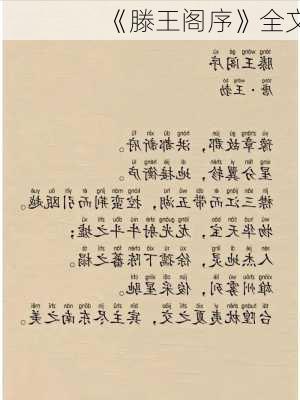 《滕王阁序》全文
滕王阁序
唐·王勃
豫章故郡，洪都新府。
星分翼轸，地接衡庐。
襟三江而带五湖，控蛮荆而引瓯越。
物华天宝，龙光射牛斗之墟；
人杰地灵，徐孺下陈蕃之榻。
雄州雾列，俊采星驰。
台隍枕夷夏之交，宾主尽东南之美。